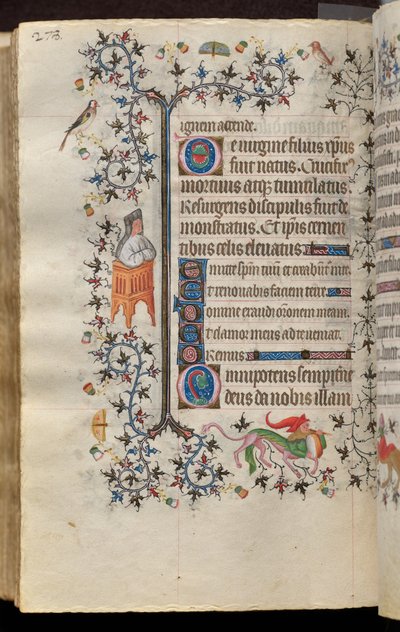 273.
ignem accende.
De virgine filius xpus
fuit natus. Crucifix9
mortuus atq; tumulatus.
Resurgens discipulis fuit de
monstratus. Et ipis cernen
tibus celis elevatus
Emitte spm tuu et creabunt
Et renovabis faciem terre.
Domine exaudi oronem meam.
Et clamor meus ad te veniat.
Oremus
Omnipotens sempiterne
deus da nobis illam